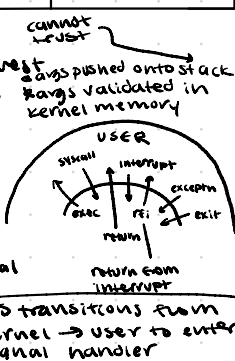 cannot
trust
args pushed onto stack
args validated in
kernel memory
USER
syscall interrupt
exceptn
exec rti exit
return
return from
interrupt
s transitions from
rnel → user to enter
gnal handler